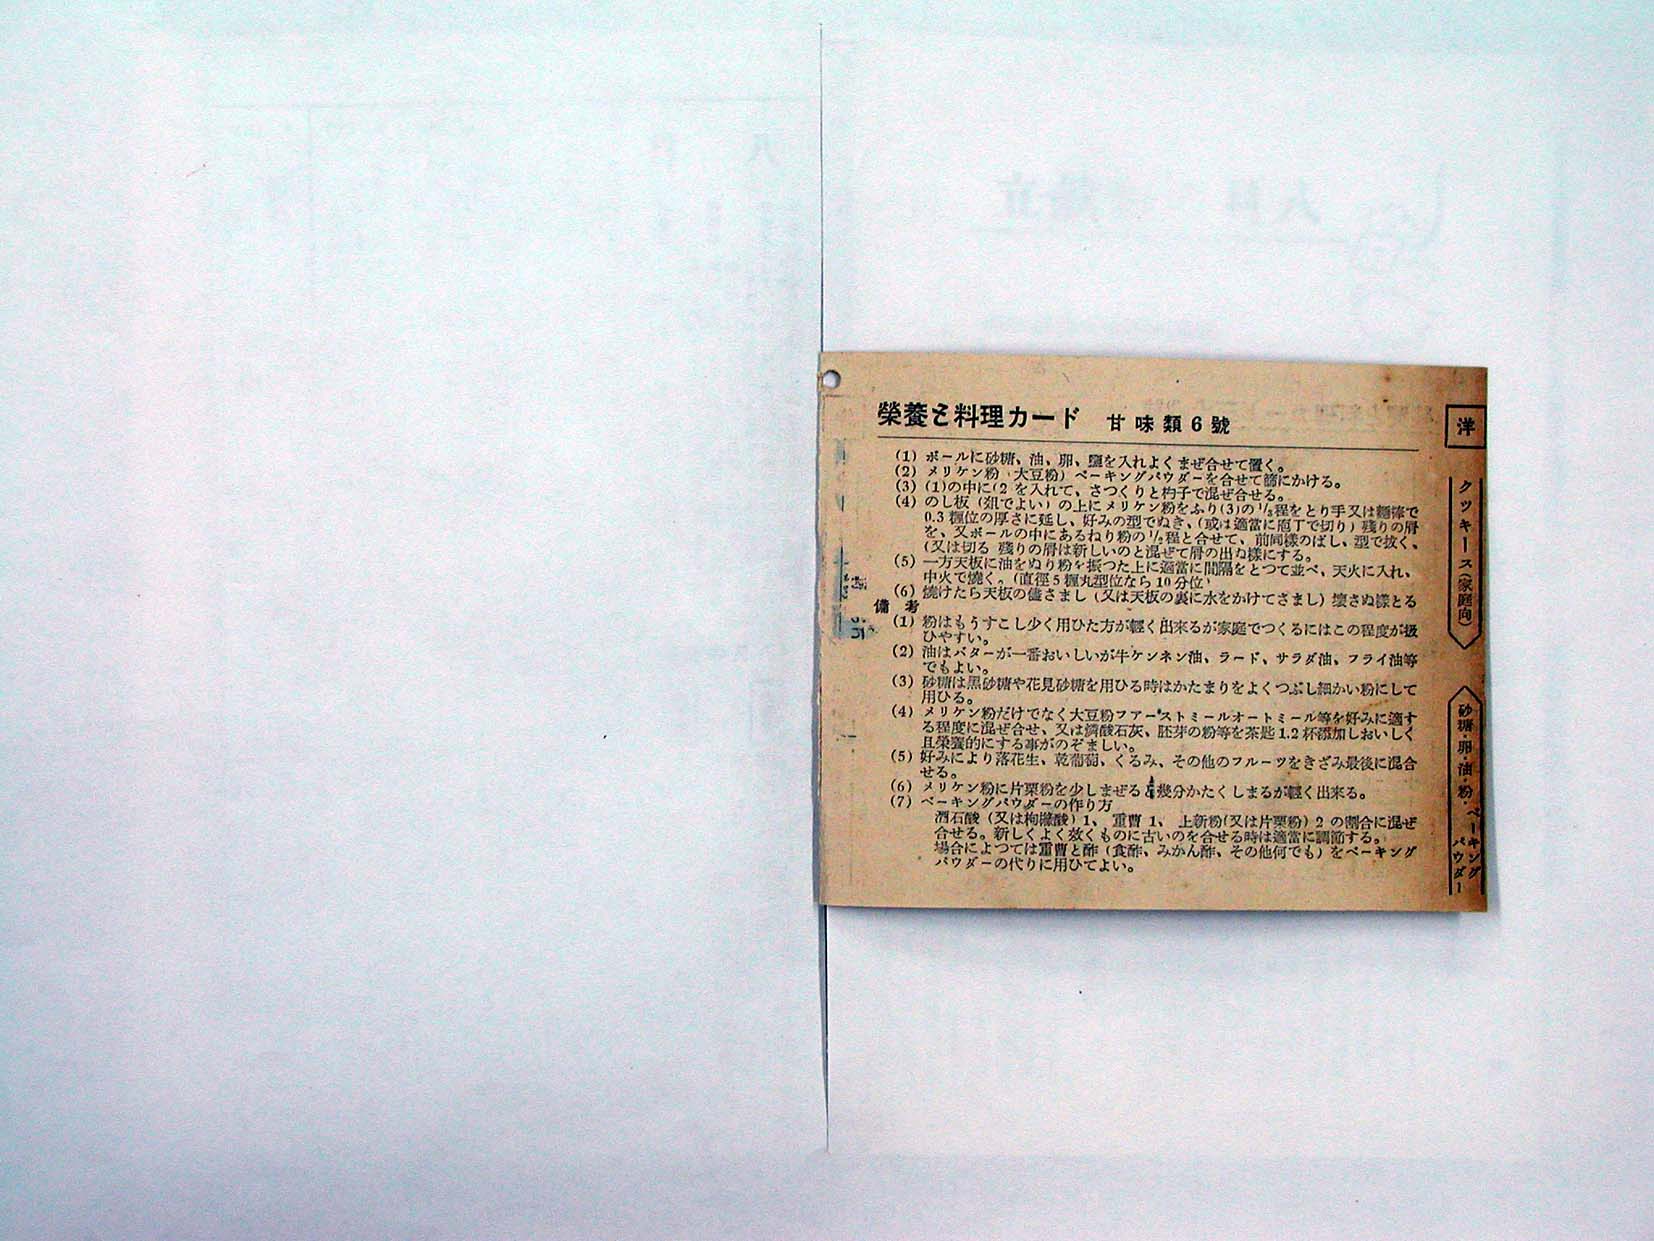 榮養と料理カード 甘味類6號
(1) ボールに砂糖、油、卵、鹽を入れよくまぜ合せて置く。
(2) メリケン粉(大豆粉)ベーキングパウダーを合せて篩にかける。
(3) (1)の中に(2 を入れて、さつくりと杓子で混ぜ合せる。
(4) のし板(爼でよい)の上にメリケン粉をふり(3)の
程をとり手又は麵棒で
0.3 糎位の厚さに延し、好みの型でぬき、(或は適當に庖丁で切り)殘りの屑
を、又ボールの中にあるねり粉の
程と合せて、前同樣のばし、型で拔く、
(又は切る 殘りの屑は新しいのと混ぜて屑の出ぬ樣にする。
(5) 一方天板に油をぬり粉を振つた上に適當に間隔をとつて並べ、天火に入れ、
中火で燒く。(直徑5糎丸型位なら10分位)
(6) 燒けたら天板の儘さまし(又は天板の裏に水をかけてさまし)壞さぬ樣とる
備考
(1) 粉はもうすこし少く用ひた方が輕く出來るが家庭でつくるにはこの程度が扱
ひやすい。
(2) 油はバターが一番おいしいが牛ケンネン油、ラード、サラダ油、フライ油等
でもよい。
(3) 砂糖は黑砂糖や花見砂糖を用ひる時はかたまりをよくつぶし細かい粉にして
用ひる。
(4) メリケン粉だけでなく大豆粉フアーストミールオートミール等を好みに適す
る程度に混ぜ合せ、又は燐酸石灰、胚芽の粉等を茶匙1.2杯添加しおいしく
且榮養的にする事がのぞましい。
(5) 好みにより落花生、乾葡萄、くるみ、その他のフルーツをきざみ最後に混合
せる。
(6) メリケン粉に片栗粉を少しまぜると幾分かたくしまるが輕く出來る。
(7) ベーキングパウダーの作り方
酒石酸(又は枸櫞酸)1、 重曹1、 上新粉(又は片栗粉)2 の割合に混ぜ
合せる。新しくよく效くものに古いのを合せる時は適當に調節する。
場合によつては重曹と酢(食酢、みかん酢、その他何でも)をベーキング
パウダーの代りに用ひてよい。
洋
クツキース(家庭向)
砂糖・卵・油・粉・ベーキングパウダー